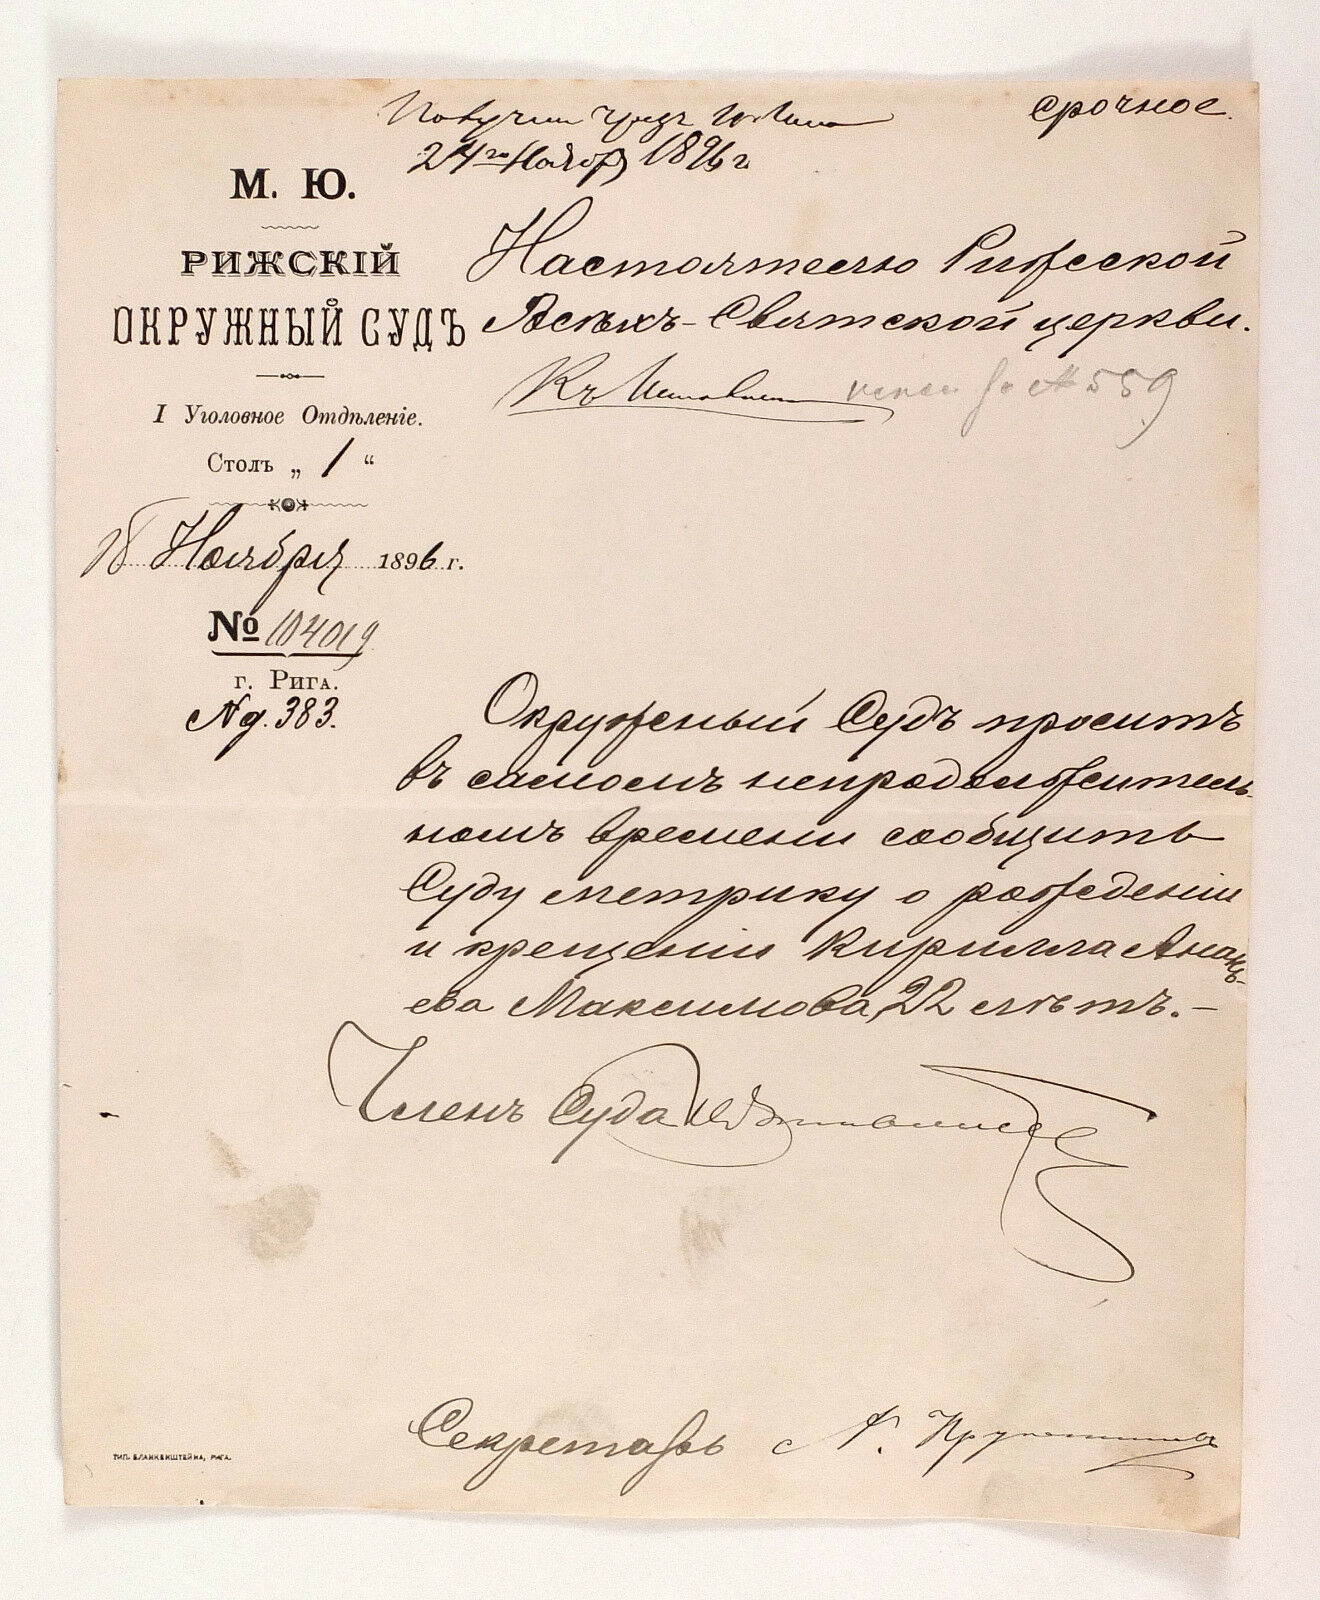 срочное.
24го Ноября 1896 г
М. Ю.
РИЖСКІЙ
ОКРУЖНЫЙ СУДЪ
I Уголовное Отдѣленіе.
Столъ „ 1 “
18 Ноября 1896 г.
№ 104019
г. Рига.
№ д. 383.
Настоятелю Рижской
Всѣхъ-Святской церкви.
№ 559
Окружный Судъ проситъ
въ самомъ непродолжитель-
номъ времени сообщить
Суду метрику о рожденіи
и крещеніи Кирилла Анань-
ева Максимова, 22 лѣтъ. —
Членъ Суда
Секретарь А.
ТИП. БЛАНКЕНШТЕЙНА, РИГА.